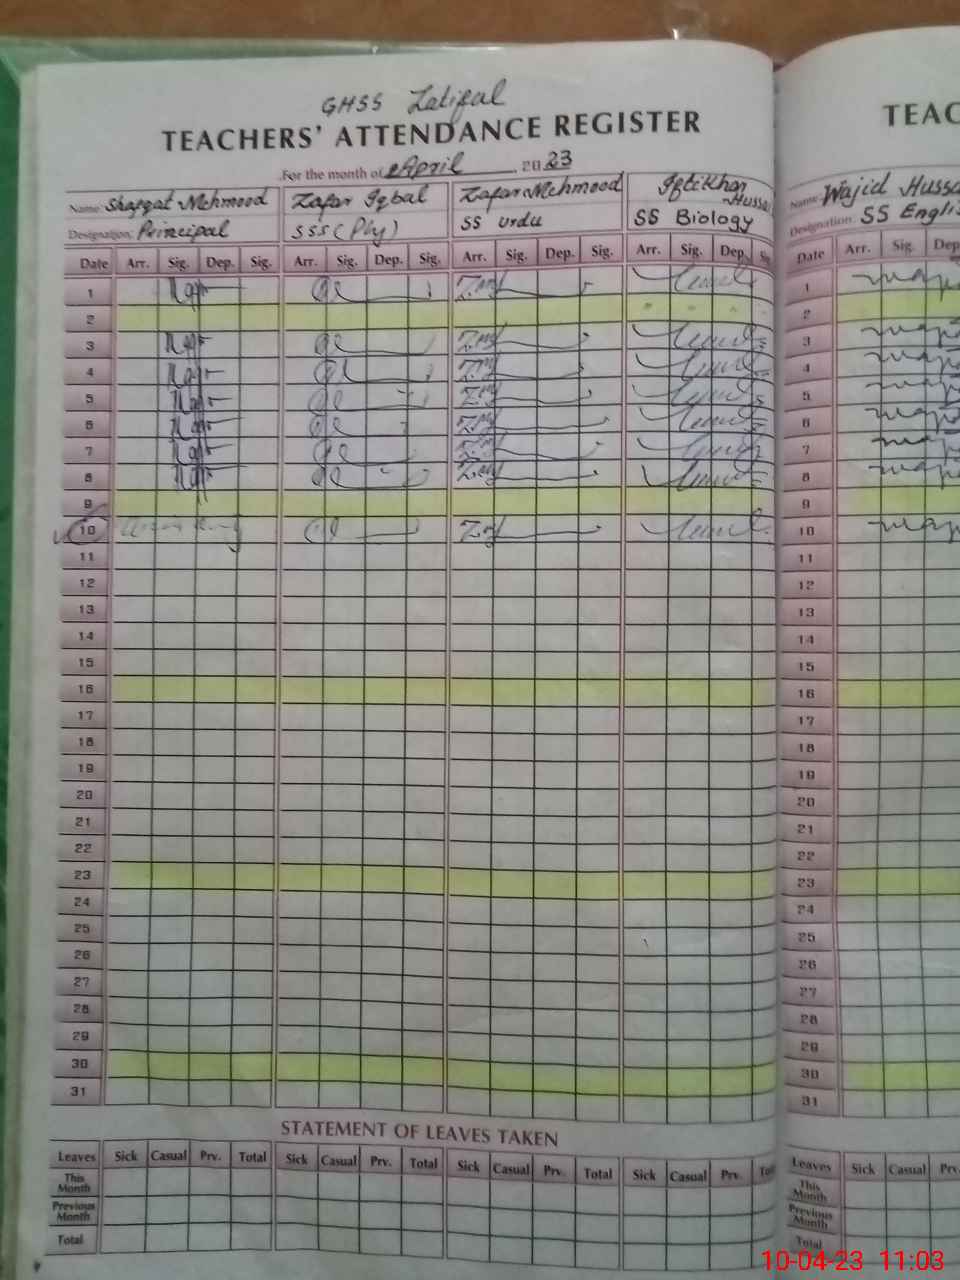 GHSS Latifal
TEACHERS' ATTENDANCE REGISTER
For the month of April, 2023
Name: Shafqat Mehmood Zafar Iqbal Zafar Mehmood Iftikhar Hussain
Designation: Principal SSS (Phy) SS Urdu SS Biology
Date Arr. Sig. Dep. Sig. Arr. Sig. Dep. Sig. Arr. Sig. Dep. Sig. Arr. Sig. Dep. Sig
1
2
3
4
5
6
7
8
9
10
11
12
13
14
15
16
17
18
19
20
21
22
23
24
25
26
27
28
29
30
31
STATEMENT OF LEAVES TAKEN
Leaves Sick Casual Prv. Total Sick Casual Prv. Total Sick Casual Prv. Total Sick Casual Prv. Tot
This Month
Previous Month
Total
TEAC
Name: Wajid Hussa
Designation: SS Englis
Date Arr. Sig. Dep
1
2
3
4
5
6
7
8
9
10
11
12
13
14
15
16
17
18
19
20
21
22
23
24
25
26
27
28
29
30
31
Leaves Sick Casual Prv.
This Month
Previous Month
Total
10-04-23 11:03